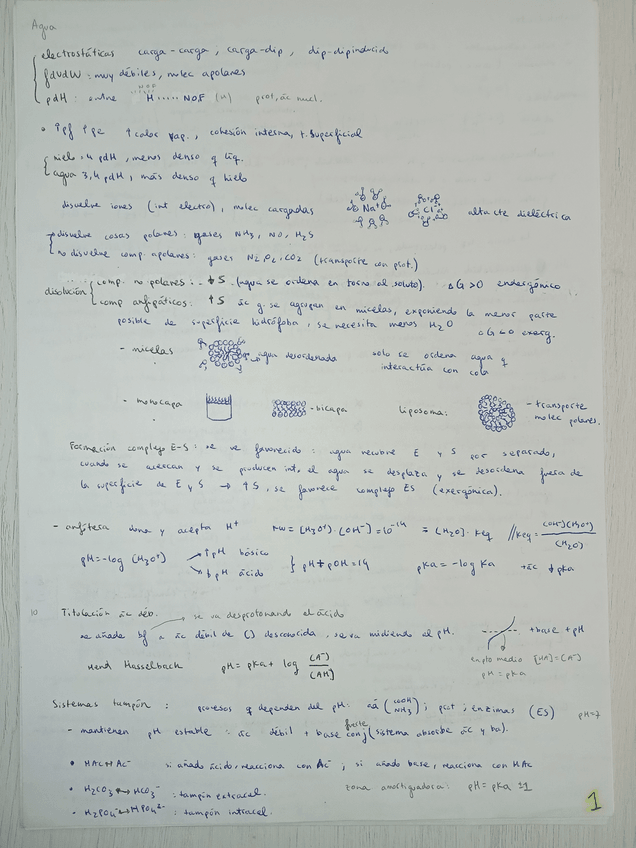 Agua
electrostáticas carga-carga, carga-dip, dip-dipinducido
fdvdW: muy débiles, molec apolares
pdH: entre H ..... NOF (H) prot, ác nucl.
• ↑pf ↑pe ↑calor vap., cohesión interna, t. superficial
hielo, 4 pdH, menos denso q líq.
agua 3,4 pdH, más denso q hielo
disuelve iones (int electro), molec cargadas Na+ Cl- alta cte dieléctrica
disuelve cosas polares: gases NH3, NO, H2S
no disuelve comp. apolares: gases N2, O2, CO2 (transporte con prot.)
disolución comp. no polares: ↓S (agua se ordena en torno al soluto). ΔG>0 endergónico
comp anfipáticos: ↑S ác g. se agrupan en micelas, exponiendo la menor parte
posible de superficie hidrófoba, se necesita menos H2O ΔG<0 exerg.
- micelas agua desordenada solo se ordena agua q
interactúa con cola
- monocapa - bicapa liposoma: - transporte
molec polares.
Formación complejo E-S: se ve favorecido: agua recubre E y S por separado,
cuando se acercan y se producen int, el agua se desplaza y se desordena fuera de
la superficie de E y S → ↑S, se favorece complejo ES (exergónica).
- anfótera dona y acepta H+ Kw = [H3O+]·[OH-] = 10^-14 = [H2O]·Keq //Keq = (OH-)(H3O+)/(H2O)
pH = -log (H3O+) ↑pH básico
↓pH ácido } pH + pOH = 14 pKa = -log Ka +ác ↓pKa
10 Titulación ác déb. → se va desprotonando el ácido
se añade bf a ác débil de () desconocida, se va midiendo el pH. +base +pH
en pto medio [HA]=(A-)
Hend Hasselbach pH = pKa + log (A-)/(AH) pH = pKa
Sistemas tampón: procesos q dependen del pH: aá (COOH NH3); prot; enzimas (ES) pH=7
- mantienen pH estable: ác débil + base conj fuerte (sistema absorbe ác y ba).
• HAc↔Ac- si añado ácido, reacciona con Ac-; si añado base, reacciona con HAc
• H2CO3↔HCO3-: tampón extracel. zona amortiguadora: pH = pKa ±1
• H2PO4-↔HPO4 2-: tampón intracel.
1